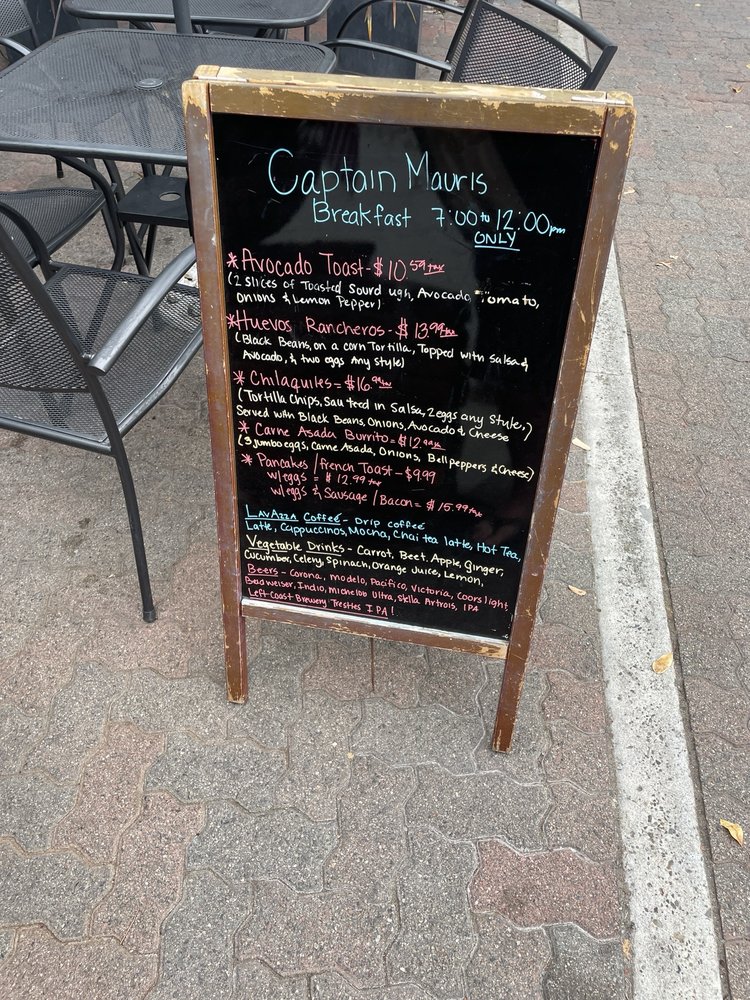 Captain Mauris
Breakfast 7:00 to 12:00pm
ONLY
* Avocado Toast - $10.59 + tax
(2 slices of Toasted Sourd ugh, Avocado Tomato,
Onions & Lemon Pepper)
* Huevos Rancheros - $13.99 + tax
(Black Beans, on a corn Tortilla, Topped with salsa &
Avocado, & two eggs Any style)
* Chilaquiles = $16.99 + tax
(Tortilla Chips, Sauteed in Salsa, 2 eggs any Style,)
Served with Black Beans, Onions, Avocado & Cheese
* Carne Asada Burrito = $12.99 + tax
(3 jumbo eggs, Carne Asada, Onions, Bell peppers & Cheese)
* Pancakes / French Toast - $9.99
w/eggs = $12.99 + tax
w/eggs & Sausage / Bacon = $15.99 + tax
LavAzza Coffee - Drip coffee
Latte, Cappuccinos, Mocha, Chai tea latte, Hot Tea,
Vegetable Drinks - Carrot, Beet, Apple, Ginger,
Cucumber, Celery, Spinach, Orange Juice, Lemon,
Beers - Corona, modelo, Pacifico, Victoria, Coors light,
Budweiser, Indio, Michelob Ultra, Stella Artrois, IPA
Left Coast Brewery Trestles IPA!